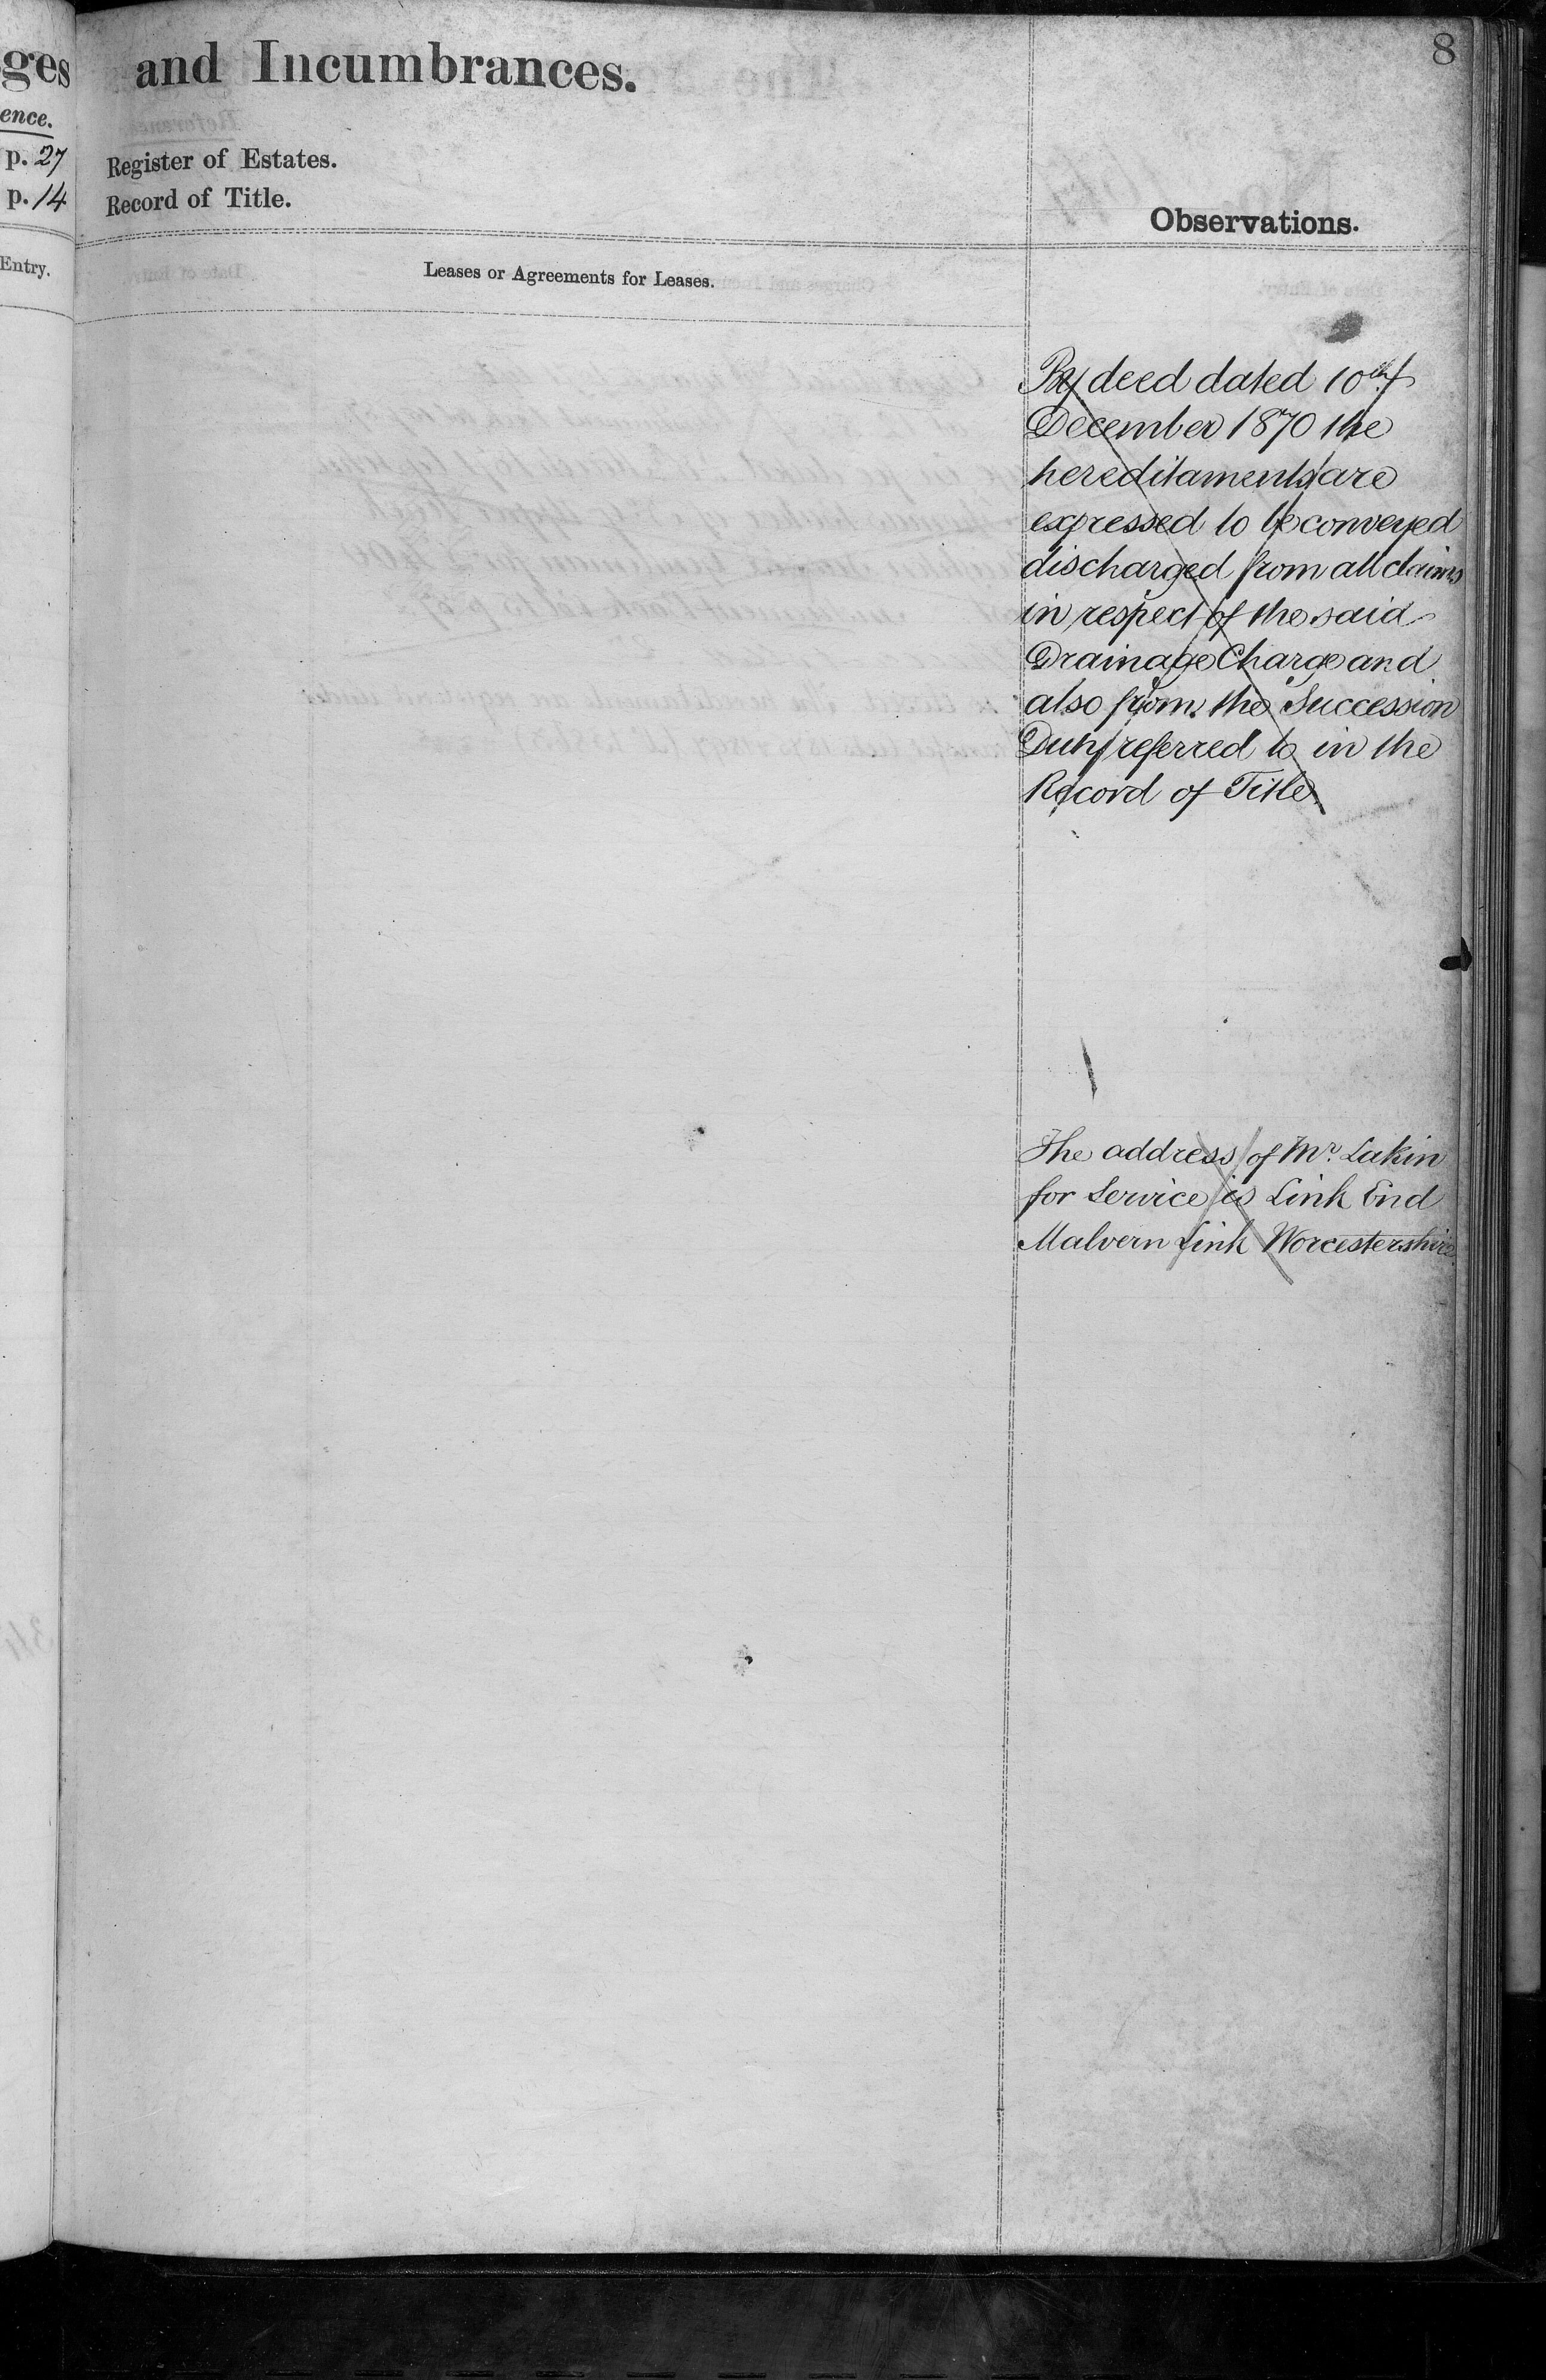 8
and Incumbrances.
ence.
p. 27 Register of Estates.
p. 14 Record of Title.
Observations.
Entry.
Leases or Agreements for Leases.
By deed dated 10th
December 1870 the
hereditaments are
expressed to be conveyed
discharged from all claims
in respect of the said
Drainage Charge and
also from the Succession
Duty referred to in the
Record of Title
The address of Mr. Lakin
for Service is Link End
Malvern Link Worcestershire